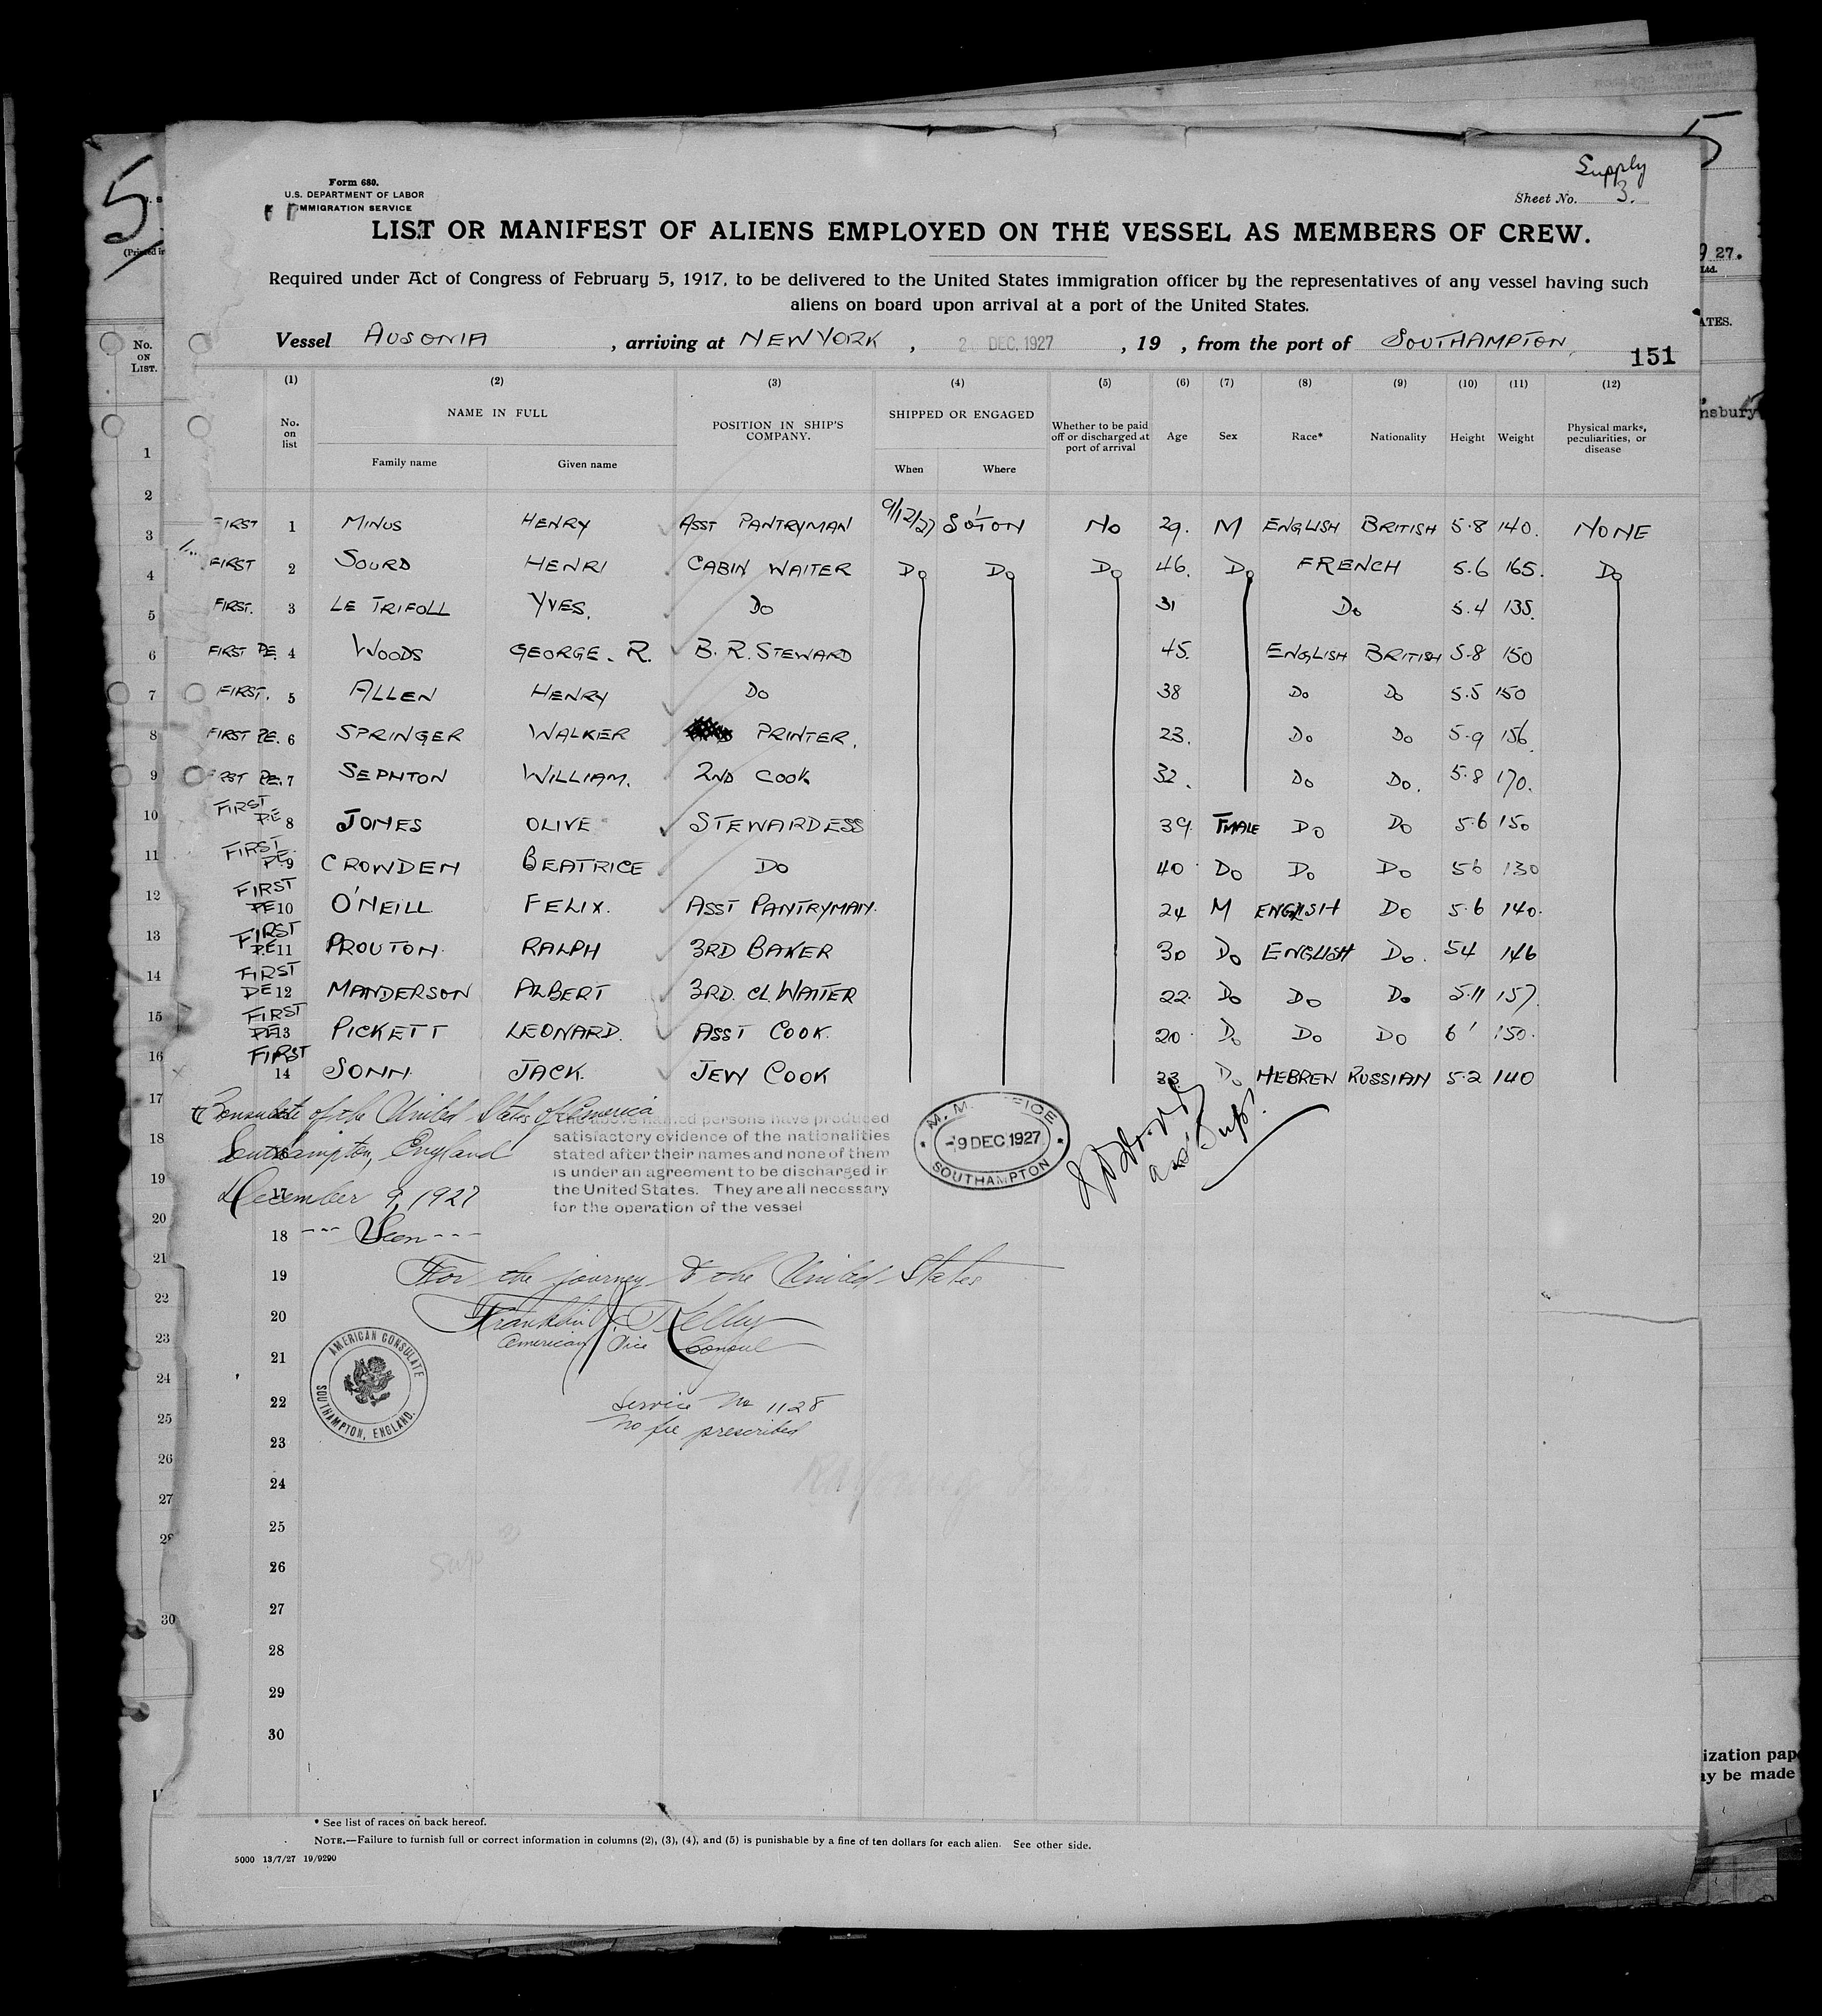 Supply
Form 680.
U.S. DEPARTMENT OF LABOR
IMMIGRATION SERVICE
Sheet No. 3.
LIST OR MANIFEST OF ALIENS EMPLOYED ON THE VESSEL AS MEMBERS OF CREW.
Required under Act of Congress of February 5, 1917, to be delivered to the United States immigration officer by the representatives of any vessel having such
aliens on board upon arrival at a port of the United States.
Vessel AUSONIA, arriving at NEW YORK, 2 DEC. 1927, 19 , from the port of SOUTHAMPTON,
151
(1) (2) (3) (4) (5) (6) (7) (8) (9) (10) (11) (12)
No. on list NAME IN FULL POSITION IN SHIP'S COMPANY. SHIPPED OR ENGAGED Whether to be paid off or discharged at port of arrival Age Sex Race* Nationality Height Weight Physical marks, peculiarities, or disease
Family name Given name When Where
FIRST 1 MINUS HENRY ASST PANTRYMAN 9/12/27 S'OTON NO 29. M ENGLISH BRITISH 5.8 140. NONE
FIRST 2 SOURD HENRI CABIN WAITER DO DO DO 46. DO FRENCH 5.6 165. DO
FIRST. 3 LE TRIFOLL YVES. DO 31 DO 5.4 135.
FIRST PE. 4 WOODS GEORGE. R. B. R. STEWARD 45. ENGLISH BRITISH 5.8 150
FIRST. 5 ALLEN HENRY DO 38 DO DO 5.5 150
FIRST PE. 6 SPRINGER WALKER PRINTER. 23. DO DO 5.9 156
FIRST PE. 7 SEPHTON WILLIAM. 2ND COOK 32. DO DO. 5.8 170.
FIRST PE 8 JONES OLIVE STEWARDESS 39. FMALE DO DO 5.6 150
FIRST PE. 9 CROWDEN BEATRICE DO 40 DO DO DO 5 6 130
FIRST PE 10 O'NEILL FELIX. ASST PANTRYMAN. 24 M ENGLISH DO 5.6 140.
FIRST PE 11 PROUTON. RALPH 3RD BAKER 30 DO ENGLISH DO. 5 4 146
FIRST PE 12 MANDERSON ALBERT 3RD. CL. WAITER 22. DO DO DO 5.11 157.
FIRST PE 13 PICKETT LEONARD. ASST COOK. 20. DO DO DO 6' 150.
FIRST 14 SONN. JACK. JEW COOK 33. DO HEBREW RUSSIAN 5.2 140
Consulate of the United States of America
Southampton, England
December 9, 1927
The above named persons have produced
satisfactory evidence of the nationalities
stated after their names and none of them
is under an agreement to be discharged in
the United States. They are all necessary
for the operation of the vessel
M. M. OFFICE
-9 DEC 1927
SOUTHAMPTON
17
18 --- Seen ---
19 For the journey to the United States
20 Franklin Kelley
American Vice Consul
21
AMERICAN CONSULATE
SOUTHAMPTON, ENGLAND.
22 Service No 1128
No fee prescribed
23
24
25
26
27
28
29
30
* See list of races on back hereof.
NOTE.—Failure to furnish full or correct information in columns (2), (3), (4), and (5) is punishable by a fine of ten dollars for each alien. See other side.
5000 13/7/27 19/9290
5
No.
ON
LIST.
1
2
3
4
5
6
7
8
9
10
11
12
13
14
15
16
17
18
19
20
21
22
23
24
25
26
27
30
5
27.
Ltd.
ization pap
ay be made